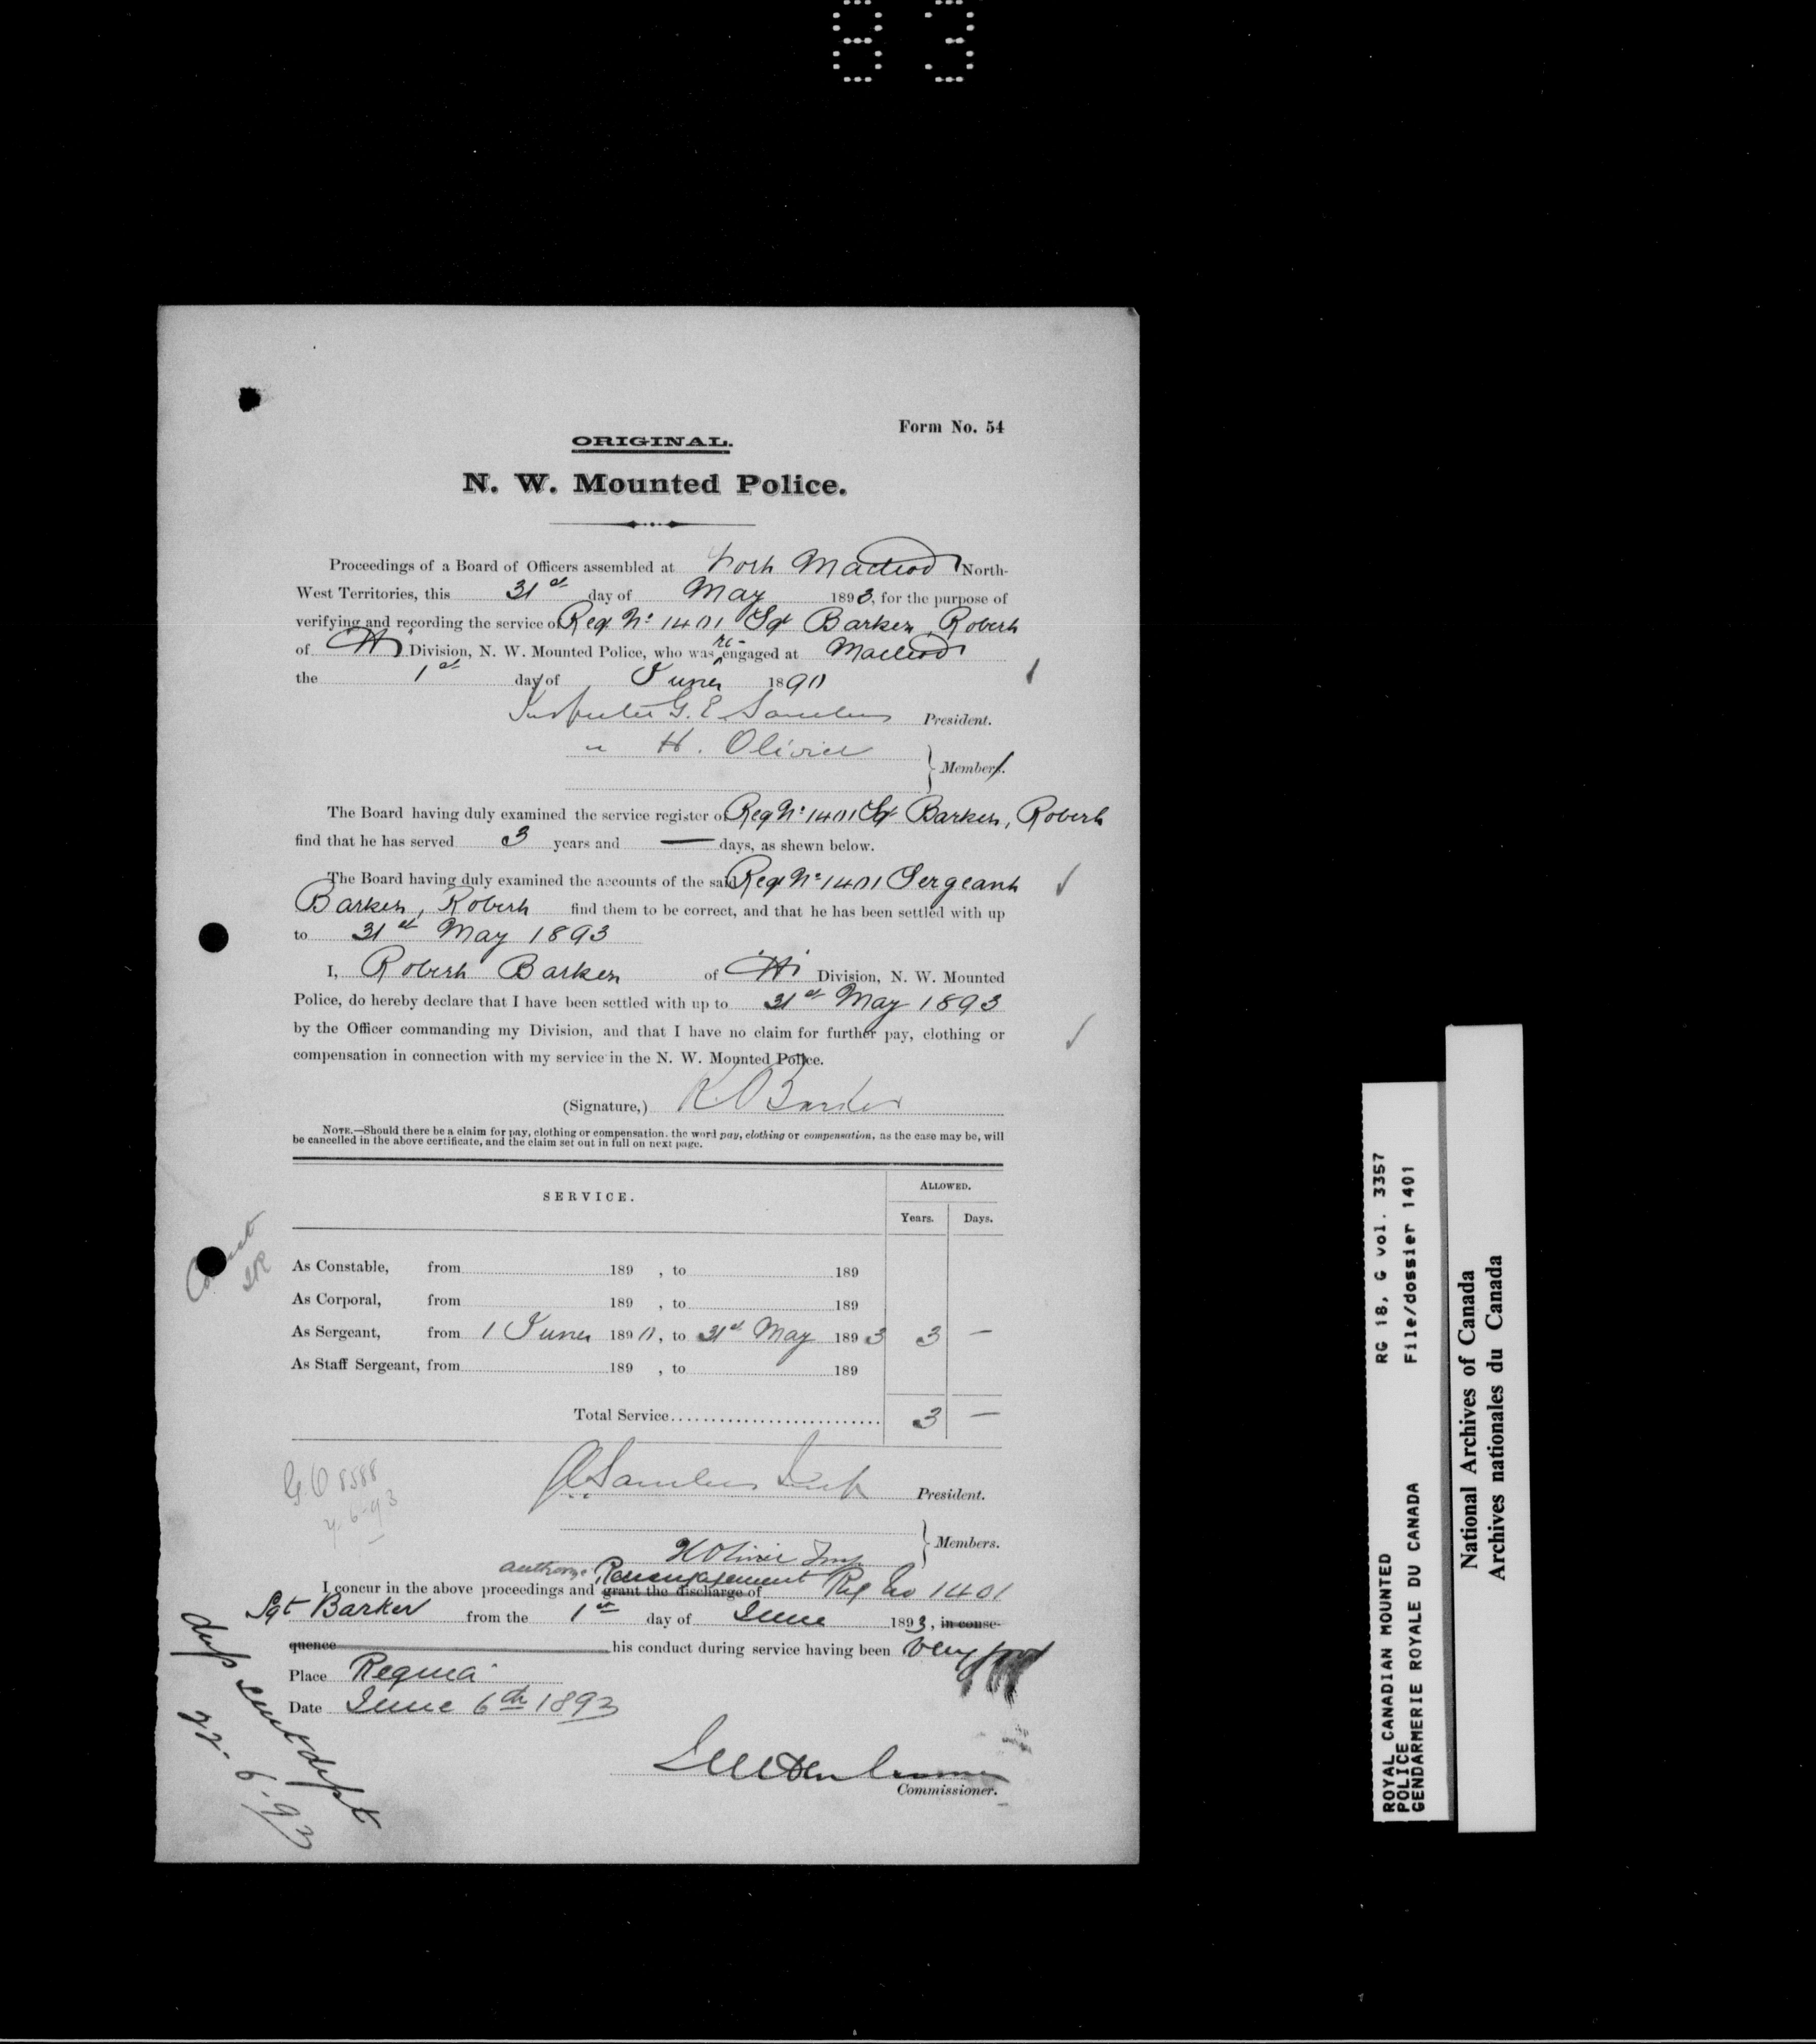 83
Form No. 54
ORIGINAL.
N. W. Mounted Police.
Proceedings of a Board of Officers assembled at Fort Macleod North-
West Territories, this 31st day of May 1893, for the purpose of
verifying and recording the service of Reg No 1401 Sgt Barker, Robert
of "H" Division, N. W. Mounted Police, who was re-engaged at Macleod
the 1st day of June 1890
Inspector G. E. Sanders President.
" H. Olivier
Members.
The Board having duly examined the service register of Reg No 1401 Sgt Barker, Robert
find that he has served 3 years and — days, as shewn below.
The Board having duly examined the accounts of the said Reg No 1401 Sergeant
Barker, Robert find them to be correct, and that he has been settled with up
to 31st May 1893
I, Robert Barker of "H" Division, N. W. Mounted
Police, do hereby declare that I have been settled with up to 31st May 1893
by the Officer commanding my Division, and that I have no claim for further pay, clothing or
compensation in connection with my service in the N. W. Mounted Police.
(Signature,) R Barker
NOTE.—Should there be a claim for pay, clothing or compensation, the word pay, clothing or compensation, as the case may be, will
be cancelled in the above certificate, and the claim set out in full on next page.
SERVICE.
ALLOWED.
Years. Days.
Correct
As Constable, from 189 , to 189
As Corporal, from 189 , to 189
As Sergeant, from 1 June 1890, to 31st May 1893 3 —
As Staff Sergeant, from 189 , to 189
Total Service 3 —
G.O 8588
6-93
Sanders Insp President.
Members.
H Olivier Insp
authorize Re-engagement
I concur in the above proceedings and grant the discharge of Reg No 1401
Sgt Barker from the 1st day of June 1893, in conse-
quence his conduct during service having been Very good
Place Regina
Date June 6th 1893
Commissioner.
dup sent dept
22-6-93
RG 18, G vol. 3357
File/dossier 1401
ROYAL CANADIAN MOUNTED
POLICE
GENDARMERIE ROYALE DU CANADA
National Archives of Canada
Archives nationales du Canada